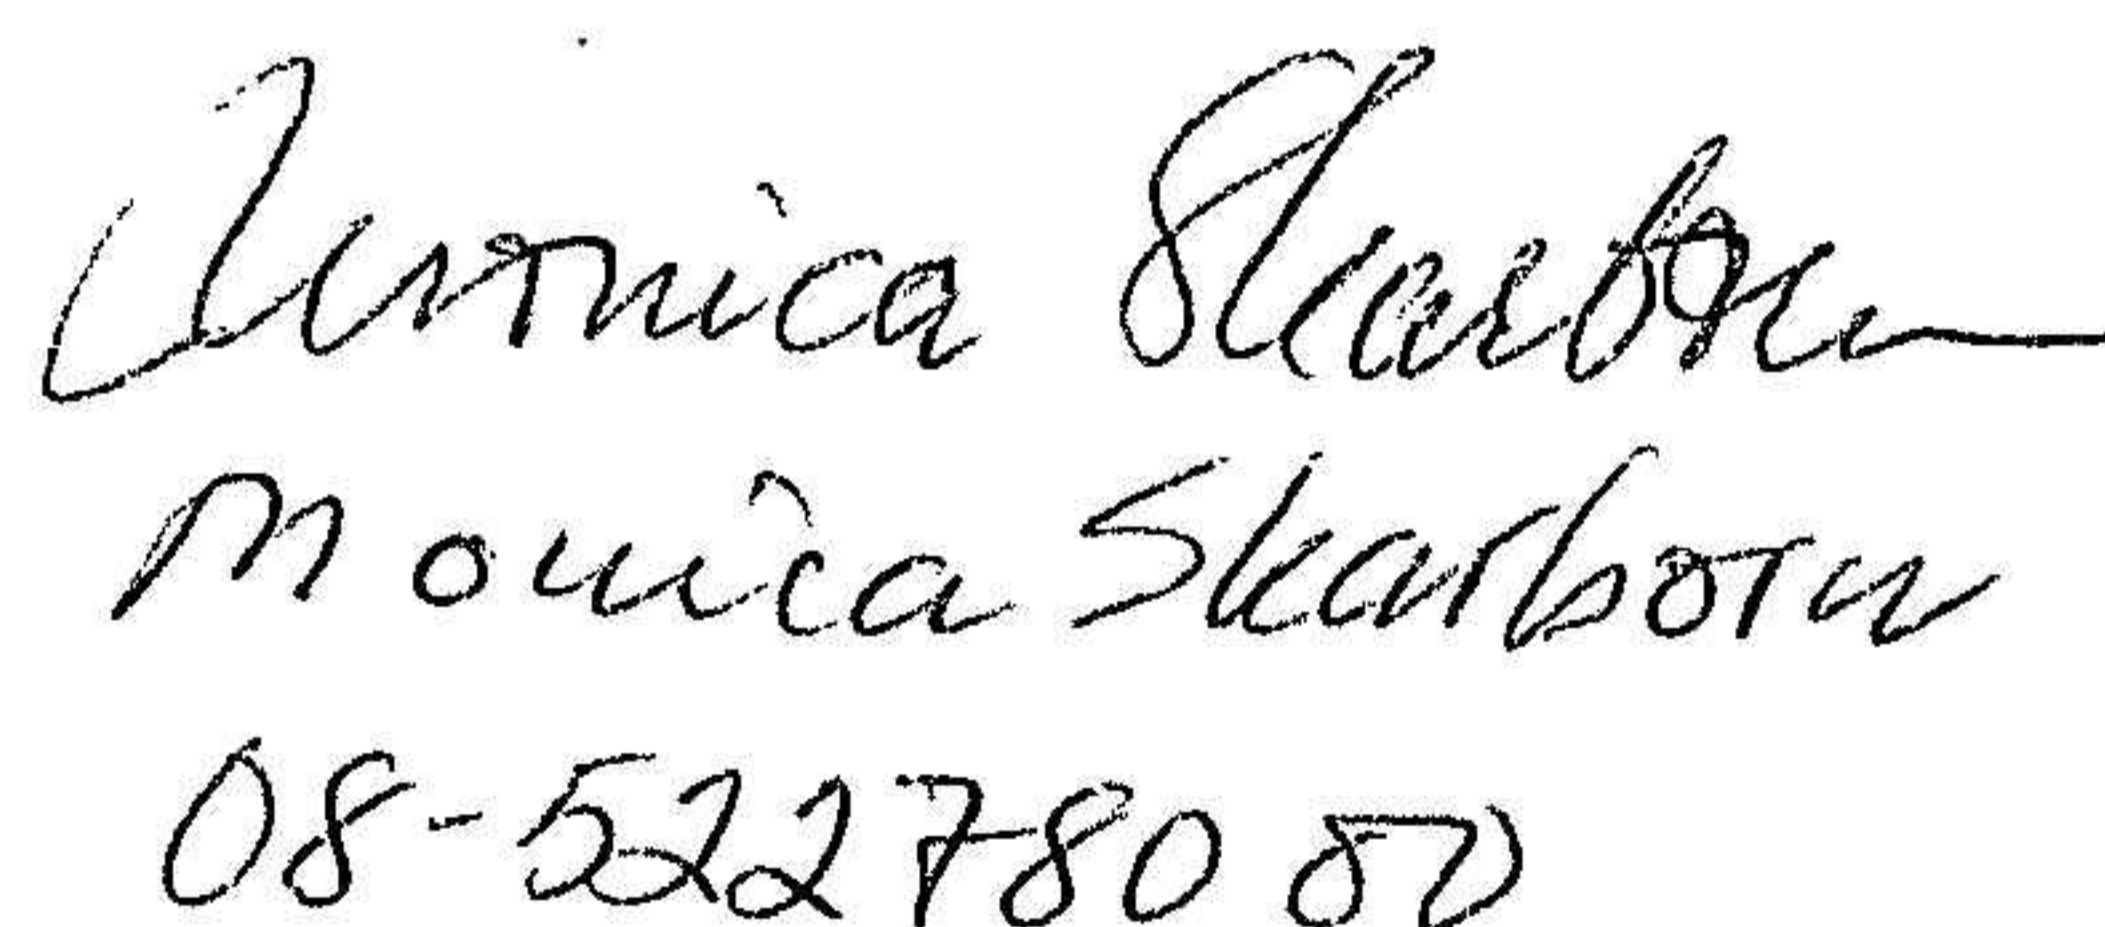 Monica Skarborn
Monica Skarborn
08-522 780 00